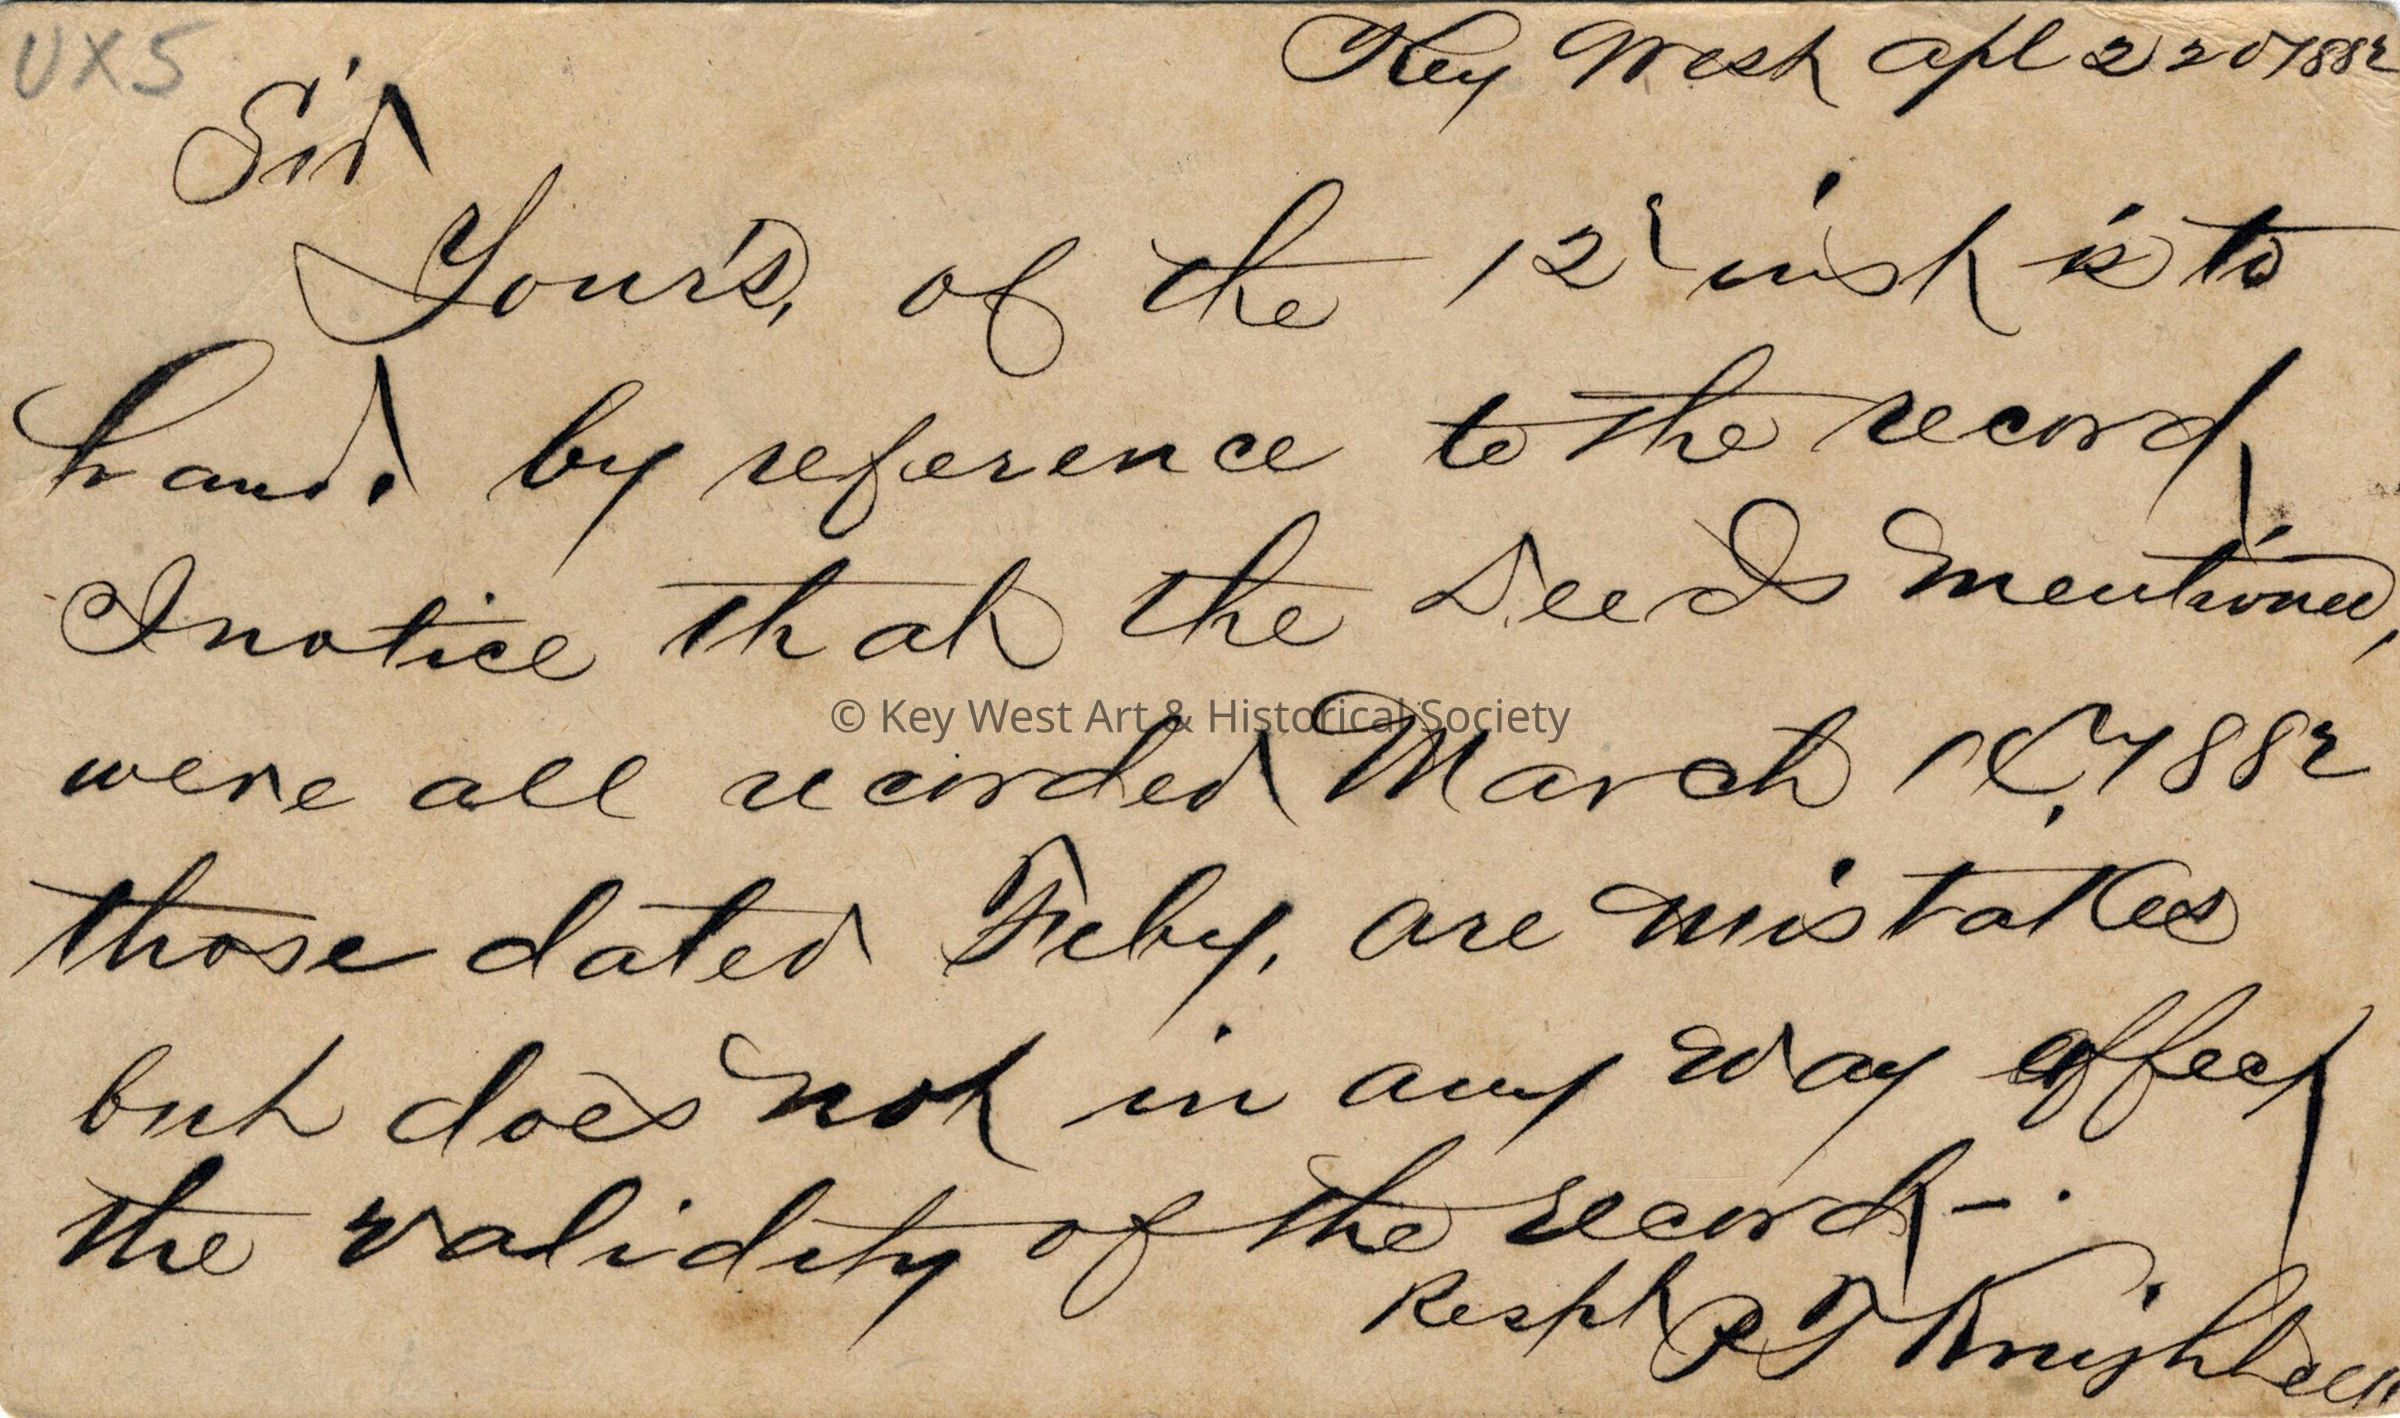 UX5
Key West Apl 22d 1882
Sir
Yours, of the 12 inst is to
hand. by reference to the record
I notice that the Deeds mentioned,
were all recorded March 1882
those dated Feby, are mistakes
but does not in any way affect
the validity of the record - .
Respt P T Knight
© Key West Art & Historical Society